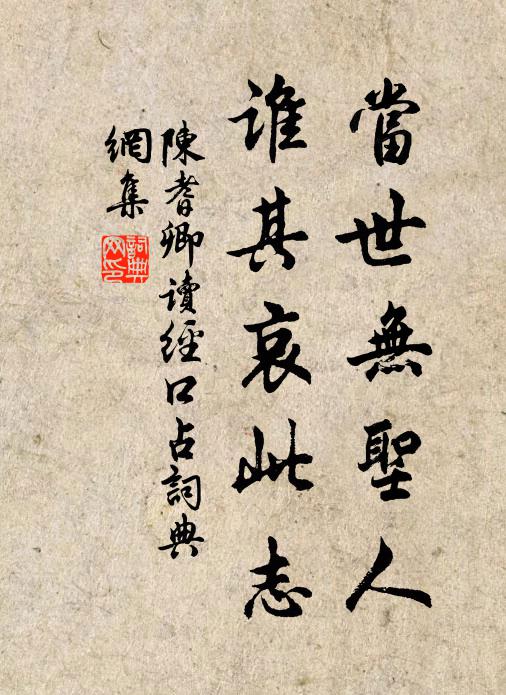 當世無聖人
誰其哀此志
陳耆卿读經口占詞典
網集
詞典网印